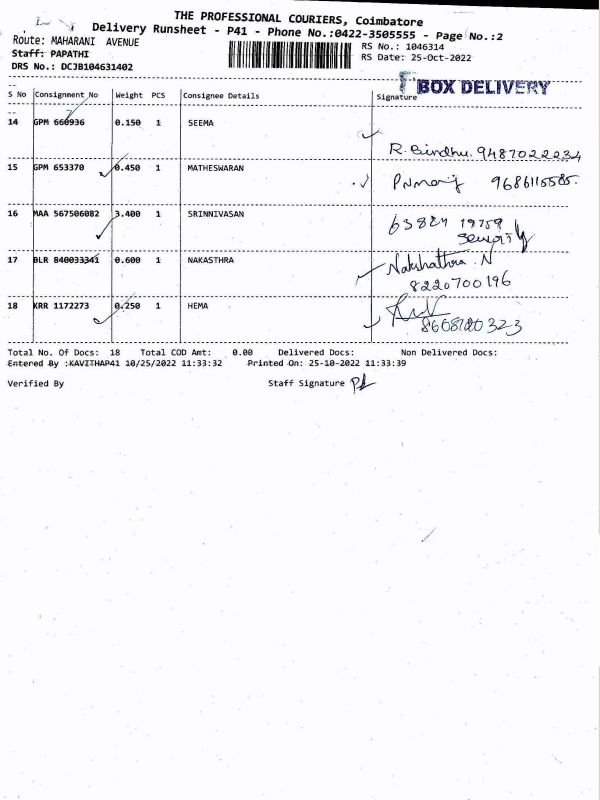 THE PROFESSIONAL COURIERS, Coimbatore
Delivery Runsheet - P41 - Phone No.:0422-3505555 - Page No.:2
Route: MAHARANI AVENUE
RS No.: 1046314
Staff: PAPATHI
RS Date: 25-Oct-2022
DRS No.: DCJB104631402
BOX DELIVERY
S No Consignment No Weight PCS Consignee Details Signature
14 GPM 660936 0.150 1 SEEMA
R. Bindhu. 9487022234
15 GPM 653370 0.450 1 MATHESWARAN
9686115585.
16 MAA 567506082 3.400 1 SRINNIVASAN
63824 19759
17 BLR 840033341 0.600 1 NAKASTHRA
Nakshathra . N
8220700196
18 KRR 1172273 0.250 1 HEMA
323
Total No. Of Docs: 18 Total COD Amt: 0.00 Delivered Docs: Non Delivered Docs:
Entered By :KAVITHAP41 10/25/2022 11:33:32 Printed On: 25-10-2022 11:33:39
Verified By Staff Signature